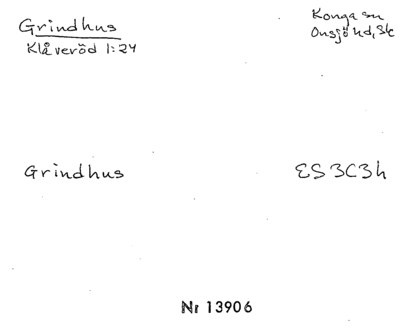 Grindhus
Klåveröd 1:24
Konga sn
Onsjö hd, Sk
Grindhus
ES 3C3h
Nr 13906